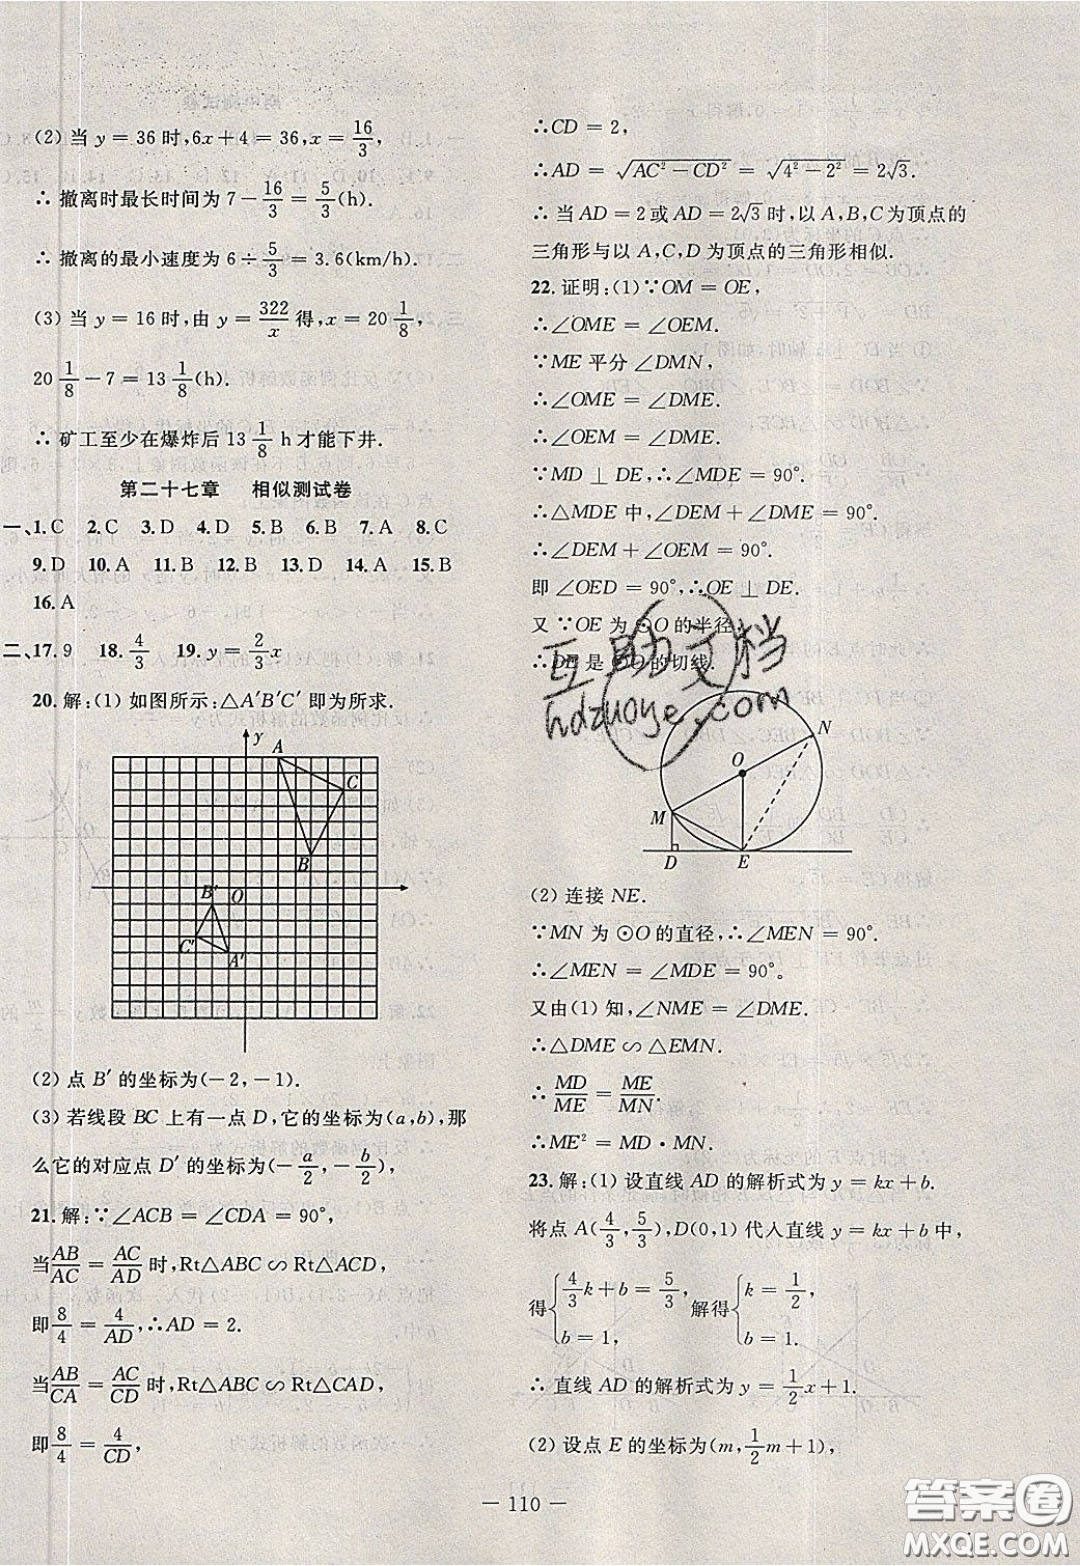 (2) 当 y = 36 时, 6x + 4 = 36, x = 16/3,
∴ 撤离时最长时间为 7 - 16/3 = 5/3 (h).
∴ 撤离的最小速度为 6 ÷ 5/3 = 3.6(km/h).
(3) 当 y = 16 时, 由 y = 322/x 得, x = 20 1/8,
20 1/8 - 7 = 13 1/8 (h).
∴ 矿工至少在爆炸后 13 1/8 h 才能下井.
第二十七章 相似测试卷
一、1. C 2. C 3. D 4. D 5. B 6. B 7. A 8. C
9. D 10. A 11. B 12. B 13. D 14. A 15. B
16. A
二、17. 9 18. 4/3 19. y = 2/3 x
20. 解:(1) 如图所示: △A′B′C′ 即为所求.
y
A
C
B
B′ O
C′
A′
(2) 点 B′ 的坐标为(-2, -1).
(3) 若线段 BC 上有一点 D, 它的坐标为(a, b), 那
么它的对应点 D′ 的坐标为(-a/2, -b/2),
21. 解: ∵∠ACB = ∠CDA = 90°,
当 AB/AC = AC/AD 时, Rt△ABC ∽ Rt△ACD,
即 8/4 = 4/AD, ∴AD = 2.
当 AB/CA = AC/CD 时, Rt△ABC ∽ Rt△CAD,
即 8/4 = 4/CD,
∴CD = 2,
∴AD = √(AC² - CD²) = √(4² - 2²) = 2√3.
∴ 当 AD = 2 或 AD = 2√3 时, 以 A, B, C 为顶点的
三角形与以 A, C, D 为顶点的三角形相似.
22. 证明:(1) ∵OM = OE,
∴∠OME = ∠OEM.
∵ME 平分 ∠DMN,
∴∠OME = ∠DME.
∴∠OEM = ∠DME.
∵MD ⊥ DE, ∴∠MDE = 90°.
∴△MDE 中, ∠DEM + ∠DME = 90°.
∴∠DEM + ∠OEM = 90°.
即 ∠OED = 90°, ∴OE ⊥ DE.
又 ∵OE 为 ⊙O 的半径,
∴DE 是 ⊙O 的切线.
互助文档
hdzuoye.com
N
O
M
D E
(2) 连接 NE.
∵MN 为 ⊙O 的直径, ∴∠MEN = 90°.
∴∠MEN = ∠MDE = 90°。
又由(1) 知, ∠NME = ∠DME.
∴△DME ∽ △EMN.
∴ MD/ME = ME/MN.
∴ME² = MD · MN.
23. 解:(1) 设直线 AD 的解析式为 y = kx + b.
将点 A(4/3, 5/3), D(0, 1) 代入直线 y = kx + b 中,
得 { 4/3 k + b = 5/3, b = 1, 解得 { k = 1/2, b = 1.
∴ 直线 AD 的解析式为 y = 1/2 x + 1.
(2) 设点 E 的坐标为(m, 1/2 m + 1),
— 110 —
答案圈
MXQE.COM